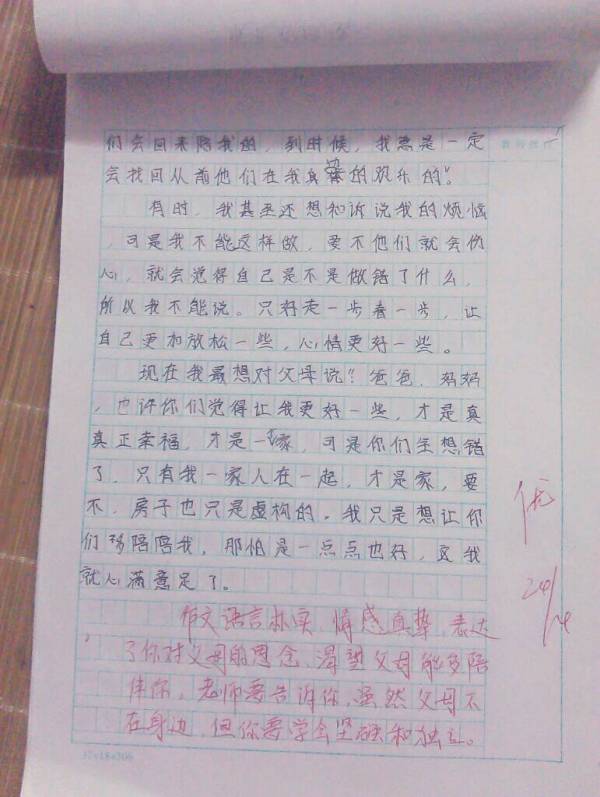 们会回来陪我的，到时候，我总是一定
会找回从前他们在我身边的欢乐的"。
有时，我甚至还想和诉说我的烦恼
，可是我不能这样做，要不他们就会伤
心，就会觉得自己是不是做错了什么，
所以我不能说。只好走一步看一步，让
自己更加放松一些，心情更好一些。
现在我最想对父母说"爸爸，妈妈
，也许你们觉得让我更好一些，才是真
真正幸福，才是一家，可是你们全想错
了，只有我一家人在一起，才是家，要
不，房子也只是虚构的，我只是想让你
们多陪陪我，那怕是一点点也好，这我
就心满意足了。
作文语言朴实，情感真挚，表达
了你对父母的思念，渴望父母能多陪
伴你，老师要告诉你，虽然父母不
在身边，但你要学会坚强和独立。
优